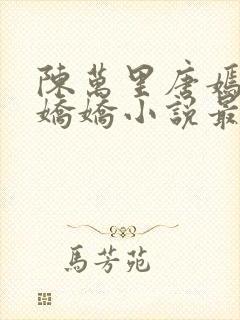 陳萬里唐嫣
嬌嬌小說最
馬芳苑